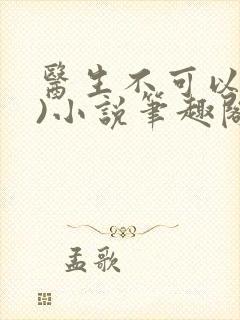 醫生不可以
)小說筆趣閣
孟歌